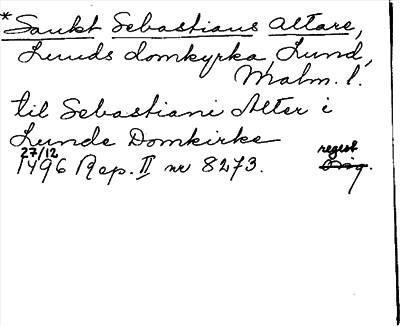 *Sankt Sebastians altare,
Lunds domkyrka, Lund,
Malm. l.
til Sebastiani Alter i
Lunde Domkirke
27/12 regest
1496 Rep. II nr 8273. Orig.